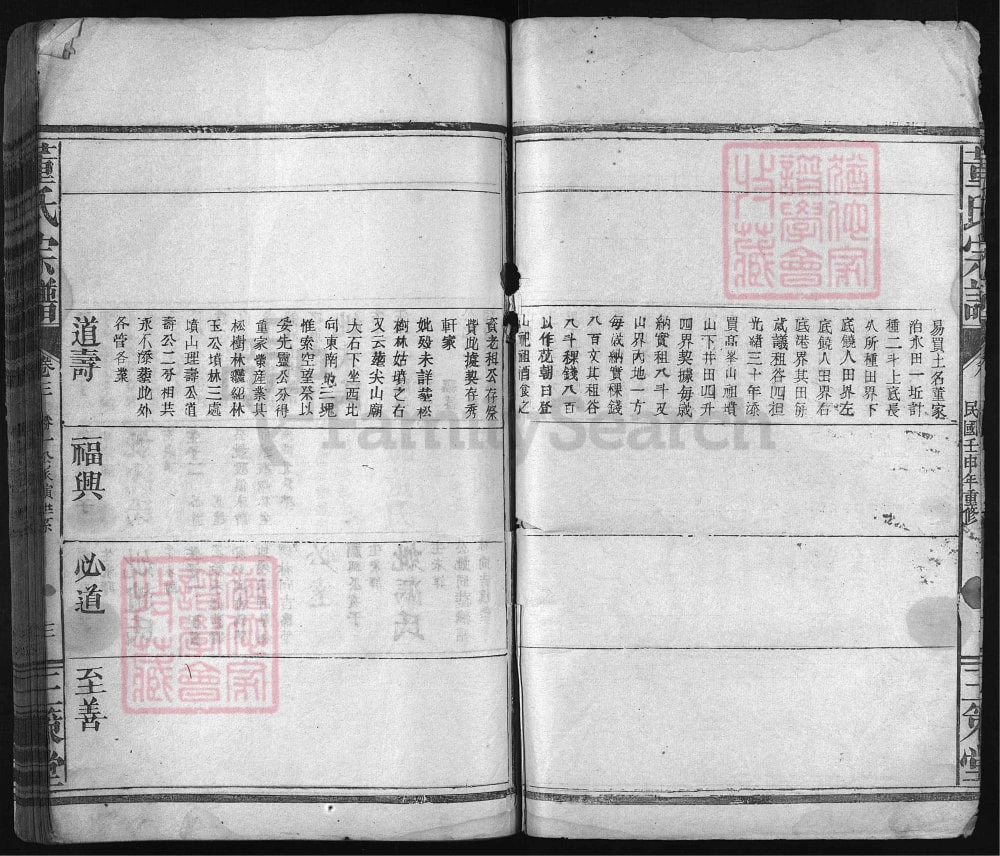 董氏宗譜
民國壬申年重修
三策堂
易買土名董家
泊水田一坵計
種二斗上底長
八所種田界下
底饒人田界左
底饒人田界右
底港界其田餅
歲議租谷四担
光緒三十年添
買高峯山祖墳
山下井田四升
四界契據每歲
納實租八斗又
山界內地一方
每歲納實稞錢
八百文其租谷
八斗稞錢八百
以作花朝日登
山祀祖酒食之
資老租公存祭
費此據契存秀
軒家
妣歿未詳葬松
樹林姑墳之右
又云葬尖山廟
大石下坐西北
向東南有二塊
惟索空望祭以
妥先靈公分得
董家業産業其
松樹林彌陀林
玉公墳林三處
墳山理壽公道
壽公二分相共
永不添葬此外
各管各業
道壽
福興
必道
至善
董氏宗譜
卷三
三
三策堂
猶他家
譜學會
收藏
猶他家
譜學會
收藏
FamilySearch